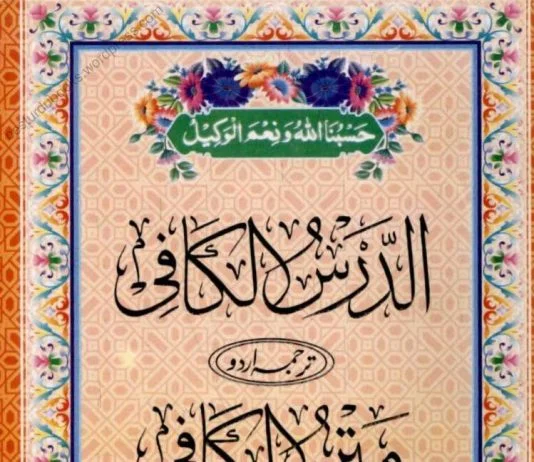 حَسْبُنَا اللهُ وَنِعْمَ الْوَكِيْلُ
الدَّرْسُ الْكَافِیْ
ترجمہ اردو
متن الکافی